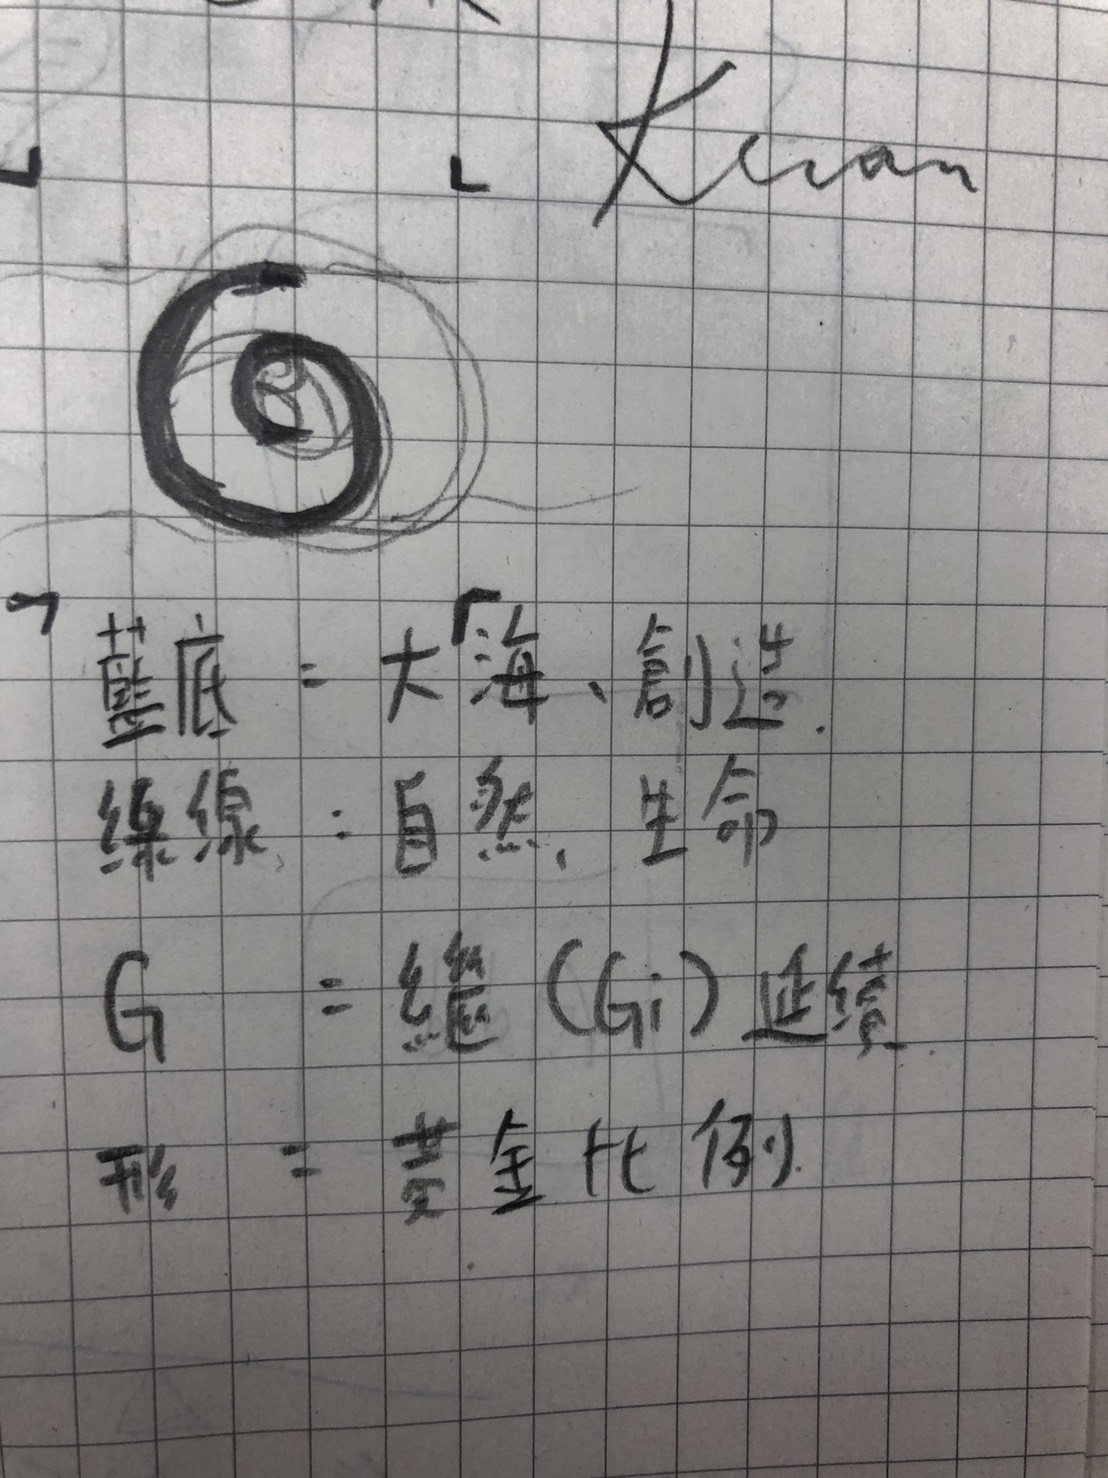 Kuan
藍底 = 大海、創造.
綠線 : 自然、生命
G = 繼 (Gi) 延續.
形 = 黃金比例.